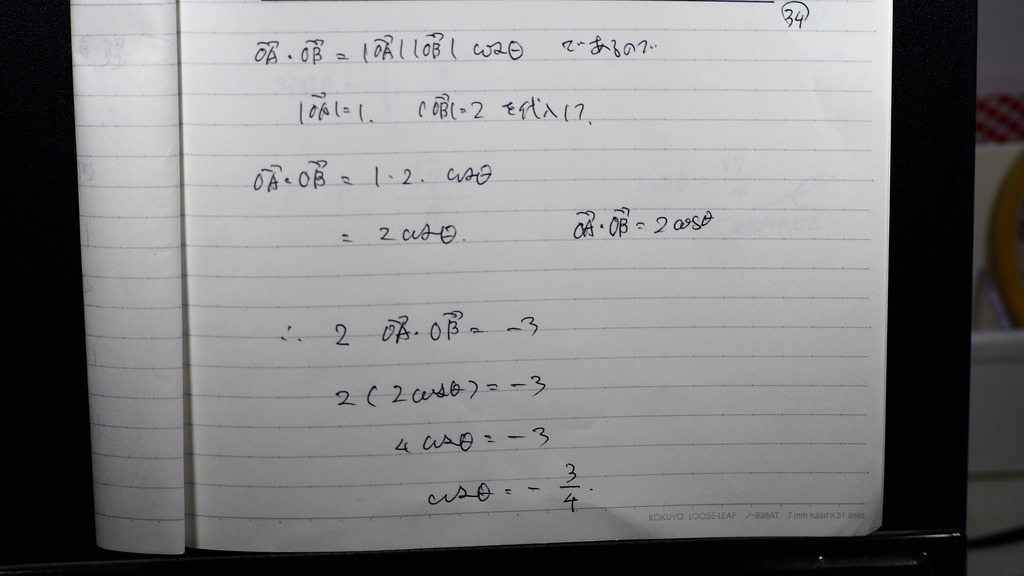 34
OA⃗・OB⃗ = |OA⃗||OB⃗| cosθ であるので
|OA⃗|=1. |OB⃗|=2 を代入して.
OA⃗・OB⃗ = 1・2. cosθ
= 2cosθ. OA⃗・OB⃗ = 2cosθ
∴ 2 OA⃗・OB⃗ = -3
2(2cosθ) = -3
4cosθ = -3
cosθ = - 3/4.
KOKUYO LOOSE-LEAF ノ-836AT 7 mm ruled×31 lines